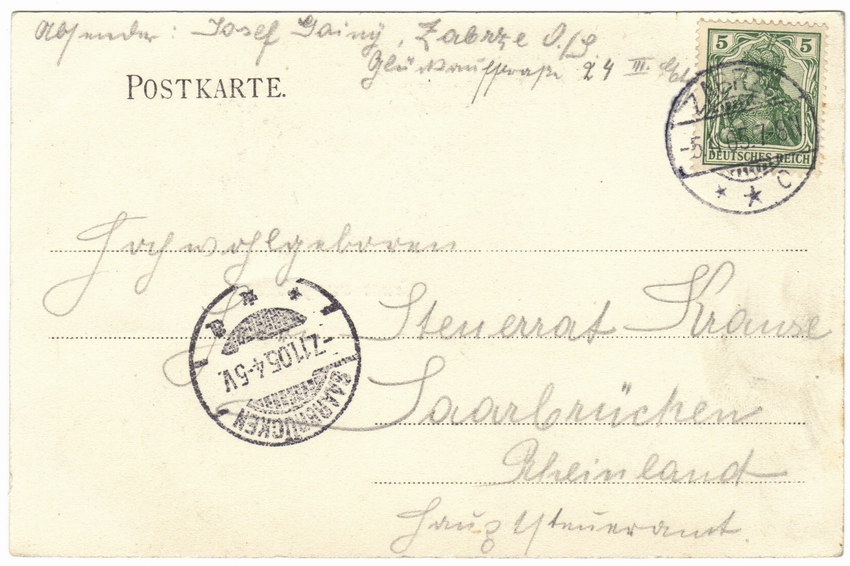 Absender: Josef Gainy, Zabrze O./S.
Glückaufstraße 24 III
POSTKARTE.
5 5
DEUTSCHES REICH
ZABRZE
05.7-8
* * C
Hochwohlgeboren
Steuerrat Krause
Saarbrücken
Rheinland
Hauptsteueramt.
-7.11.05.4-5V.
SAARBRÜCKEN